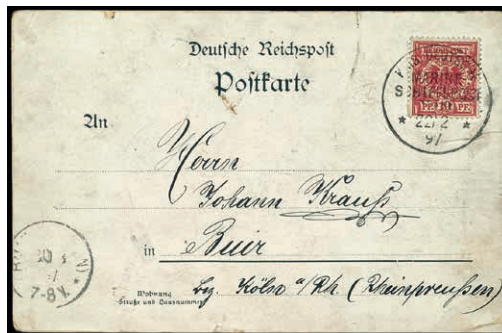 Deutsche Reichspost
Postkarte
An
Herrn
Johann Krauß
in Buir
Wohnung
Straße und Hausnummer
Bez. Köln a/Rh. (Rheinpreußen)
MARINE
22/2
97
7-8V.